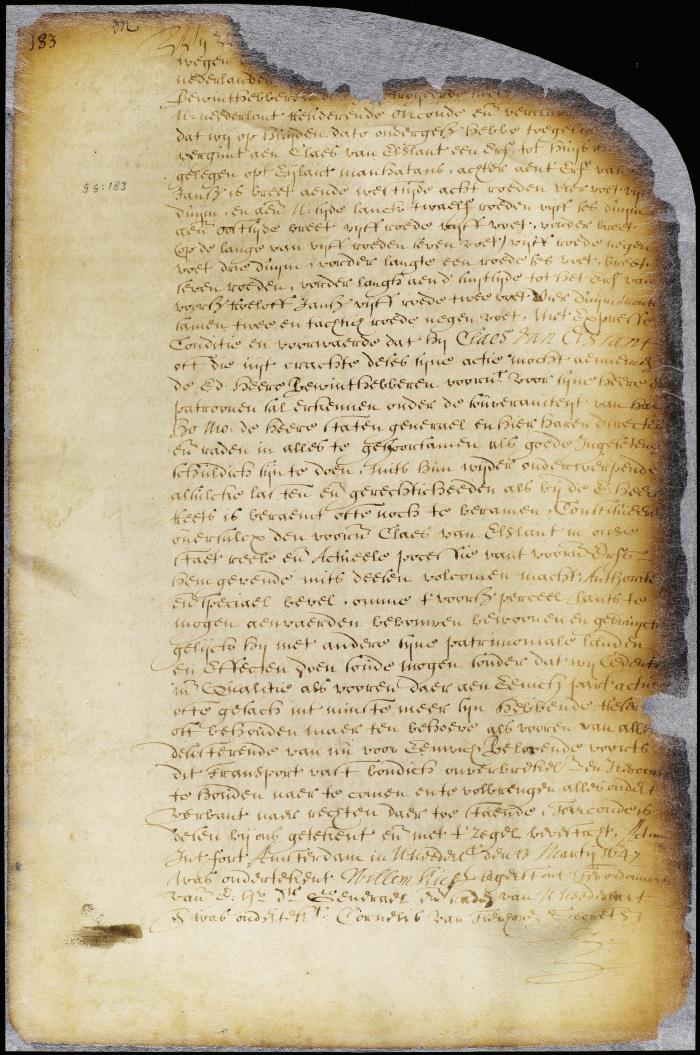 183
GG: 183
Wij
wegen
nederlanden
Bewinthebberen
N=neederlant Residerende oirconde en verclar
dat wij op huijden dato ondergesz hebbe toegel
vergunt aen Claes van Elslant een erf tot huijs en
gelegen opt Eijlant manhatans, achter aent Erf van
Jansz is breet aende west sijde acht roeden vier voet vijf
duijm, en aen N: sijde lanck twaelf roeden vijff ses duijm
aen oostsijde breet vijff roede vijff voet, vorder breet
op de langte van vijff roeden seven voet, vijff roede negen
voet drie duijm, vorder langte een roede ses voet, breet
seven roeden, vorder langh aend suijtsijde tot het erf van
voorsz Roeloff Jansz vijff roede twee voet vier duijm mont
samen twee en tachtich roede negen voet, Met Expresse
Conditie en voorwaerde dat hij Claes van Elslant
oft die uijt crachte deses sijne actie mocht aennemen
de Ed: Heere Bewinthebberen voornt voor sijne heere en
patroonen sal erkennen onder de souveraniteijt van haer
Ho: Mo: de heere staten generael en hier haren directeur
en raden in alles te gehoorsamen als goede Ingesetene
schuldich sijn te doen, mits hun wijder onderwerpende
alsulcke lasten en gerechticheeden als bij die E: heere
Reets is beraemt ofte noch te beramen, Constitueren
oversulcx den voorn Claes van Elslant in onse
staet reele en Actueele possessie vant voorn Erff
hem gevende mits deesen volcomen macht, Authorite
en speciael bevel, omme t voorsz perceel lants te
mogen aenvaerden bebouwen bewoonen en gebruijcke
gelijck hij met andere sijne patrimoniale landen
en Effecten doen soude mogen sonder dat wij Cedente
in Qualitie als vooren daer aen Eenich part actie
ofte gesach int minste meer sijn hebbende reser
oft behouden maer ten behoeve als vooren van alle
desisterende van nu voor Eewich Belovende voorts
dit Transport vast bondich onverbreckel en Irrevocab
te houden naer te comen en te volbrengen alles onder t
verbant naer rechten daer toe staende, T'oirconde is
desen bij ons getekent en met t Zegel bevesticht, Actum
Int fort Amsterdam in N:Nederl den 13 Martij 1647
was ondertekent Willem Kieft lager stont Ter ordonnant
van E: Hr Dr Generael en raden van N:Nederlant
En was onderteck: Cornelis van Tienhoven Secrets